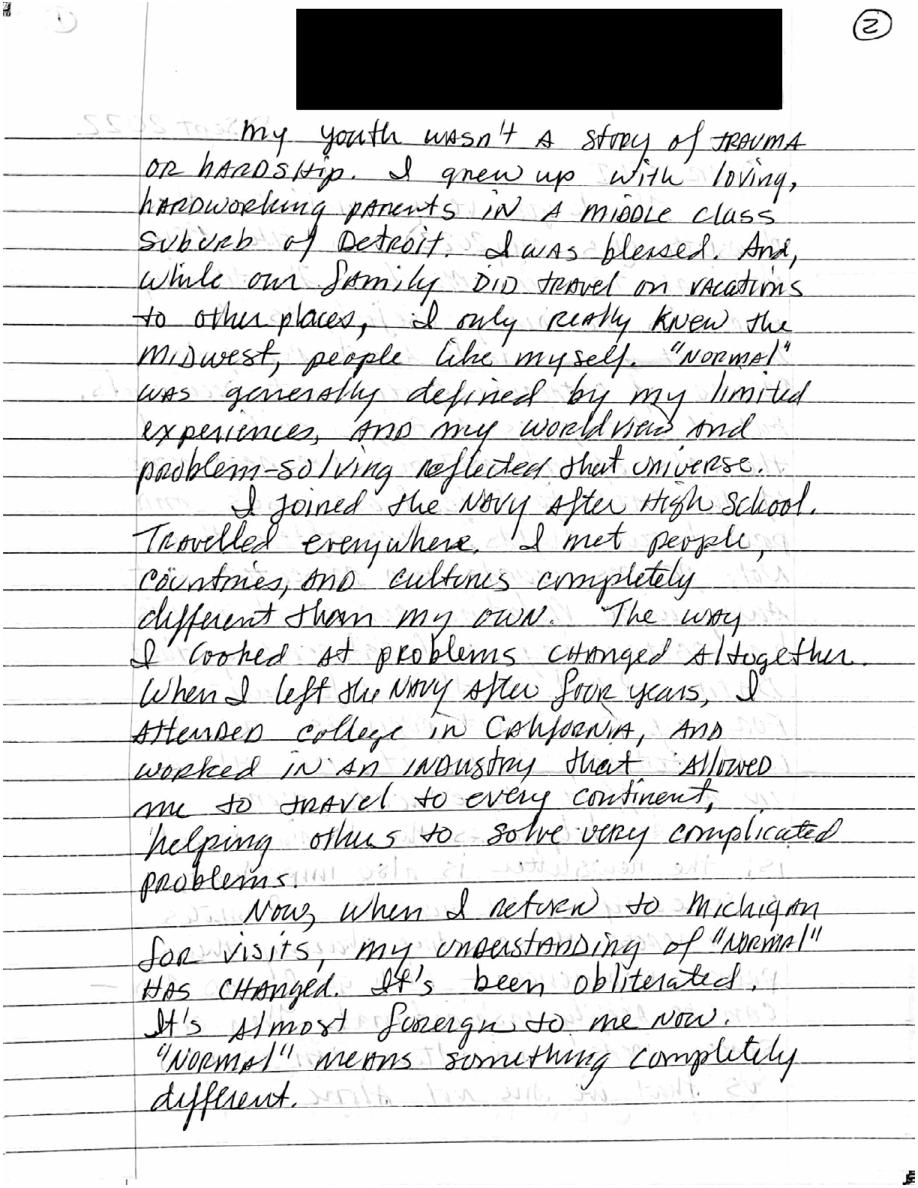 2
My youth wasn't a story of trauma
or hardship. I grew up with loving,
hardworking parents in a middle class
suburb of Detroit. I was blessed. And,
while our family did travel on vacations
to other places, I only really knew the
Midwest, people like myself. "Normal"
was generally defined by my limited
experiences, and my worldview and
problem-solving reflected that universe.
I joined the Navy after high school.
Travelled everywhere. I met people,
countries, and cultures completely
different than my own. The way
I looked at problems changed altogether.
When I left the Navy after four years, I
attended college in California, and
worked in an industry that allowed
me to travel to every continent,
helping others to solve very complicated
problems.
Now, when I return to Michigan
for visits, my understanding of "normal"
has changed. It's been obliterated.
It's almost foreign to me now.
"Normal" means something completely
different.